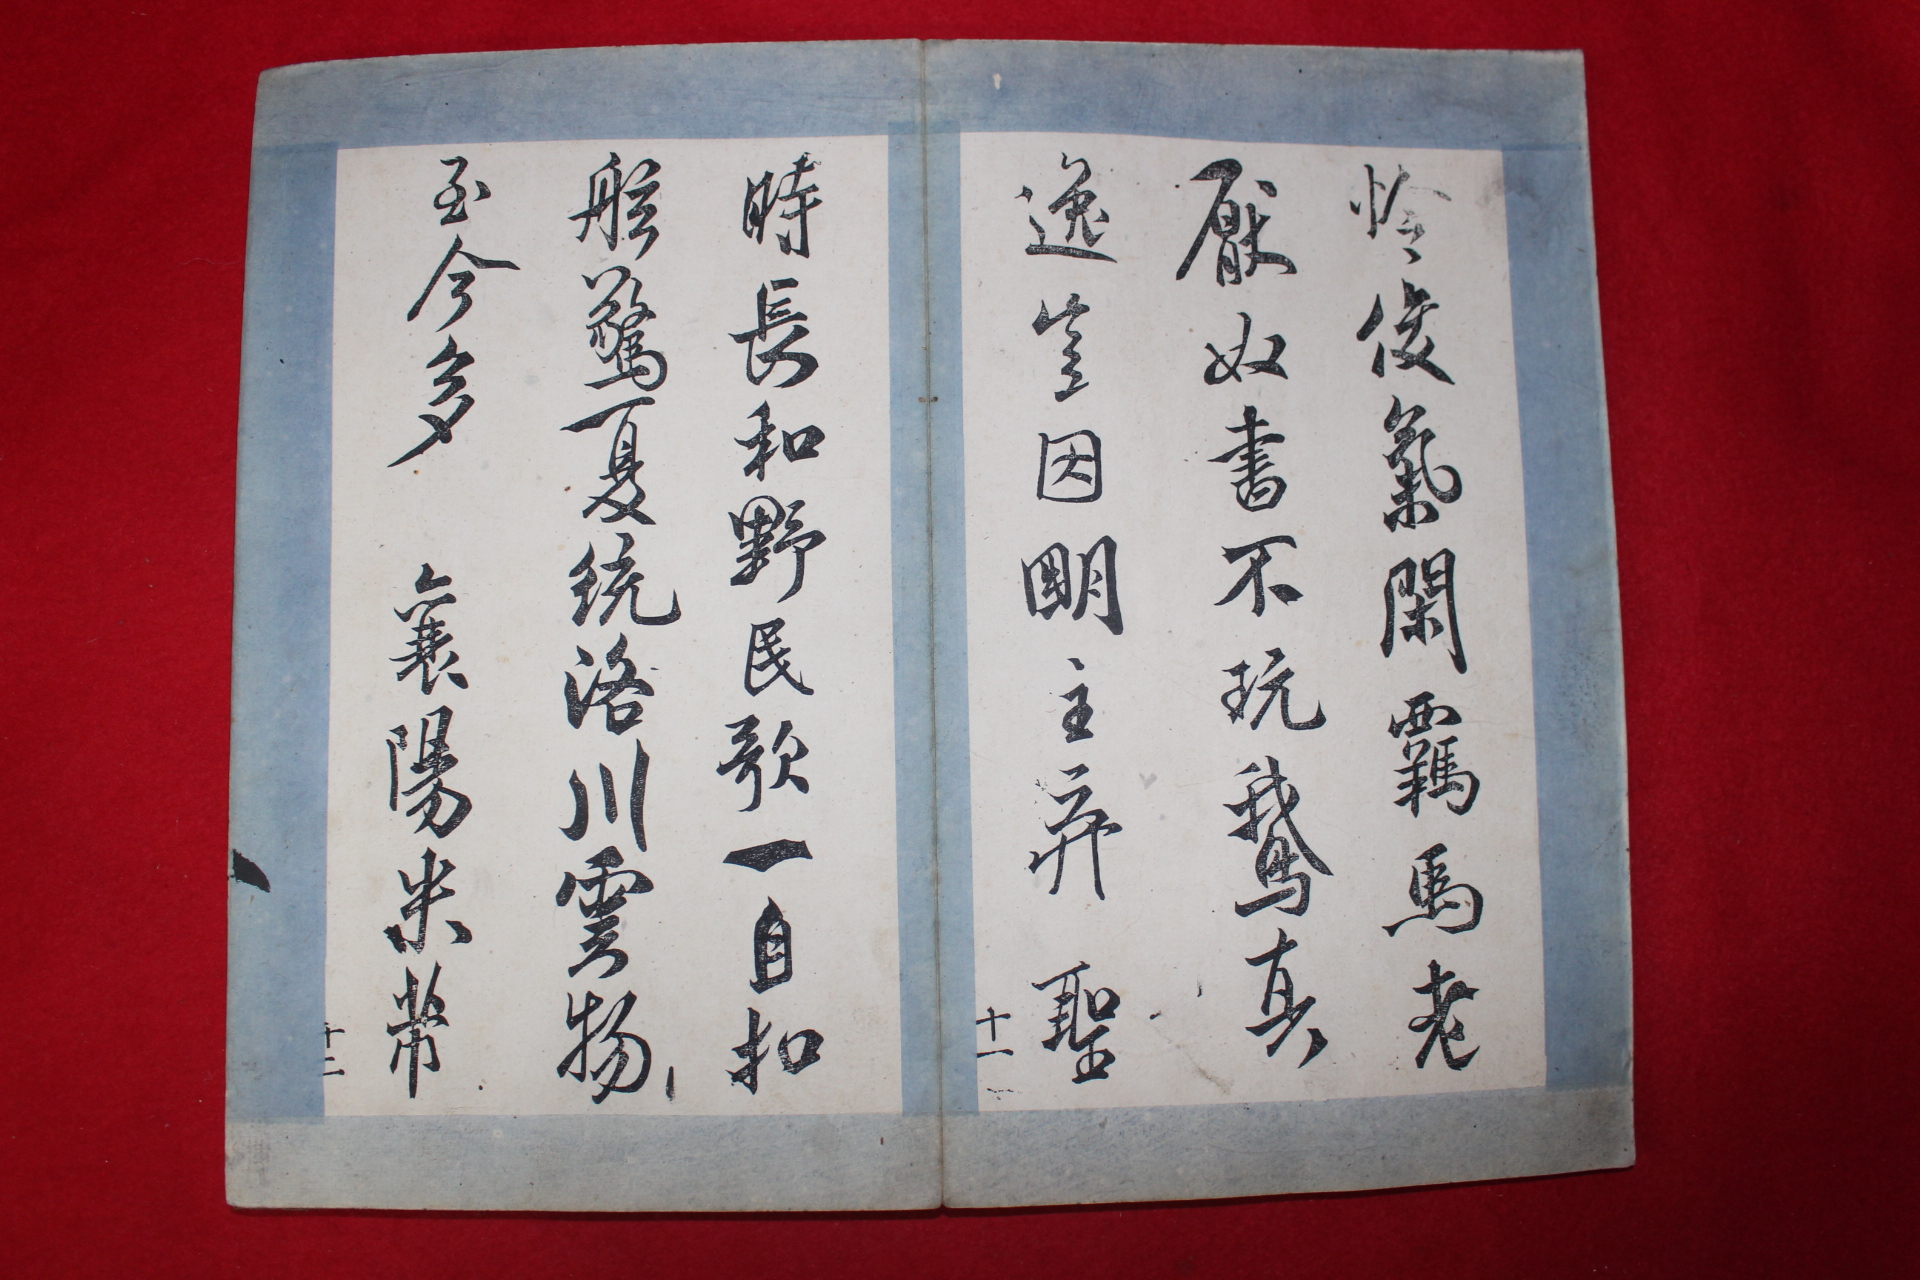 怜俊氣閑羈馬老
厭奴書不玩鵞真
逸豈因明主弃 聖
十一
時長和野民歌一自扣
舷驚夏統洛川雲物
至今多 襄陽米芾
十二